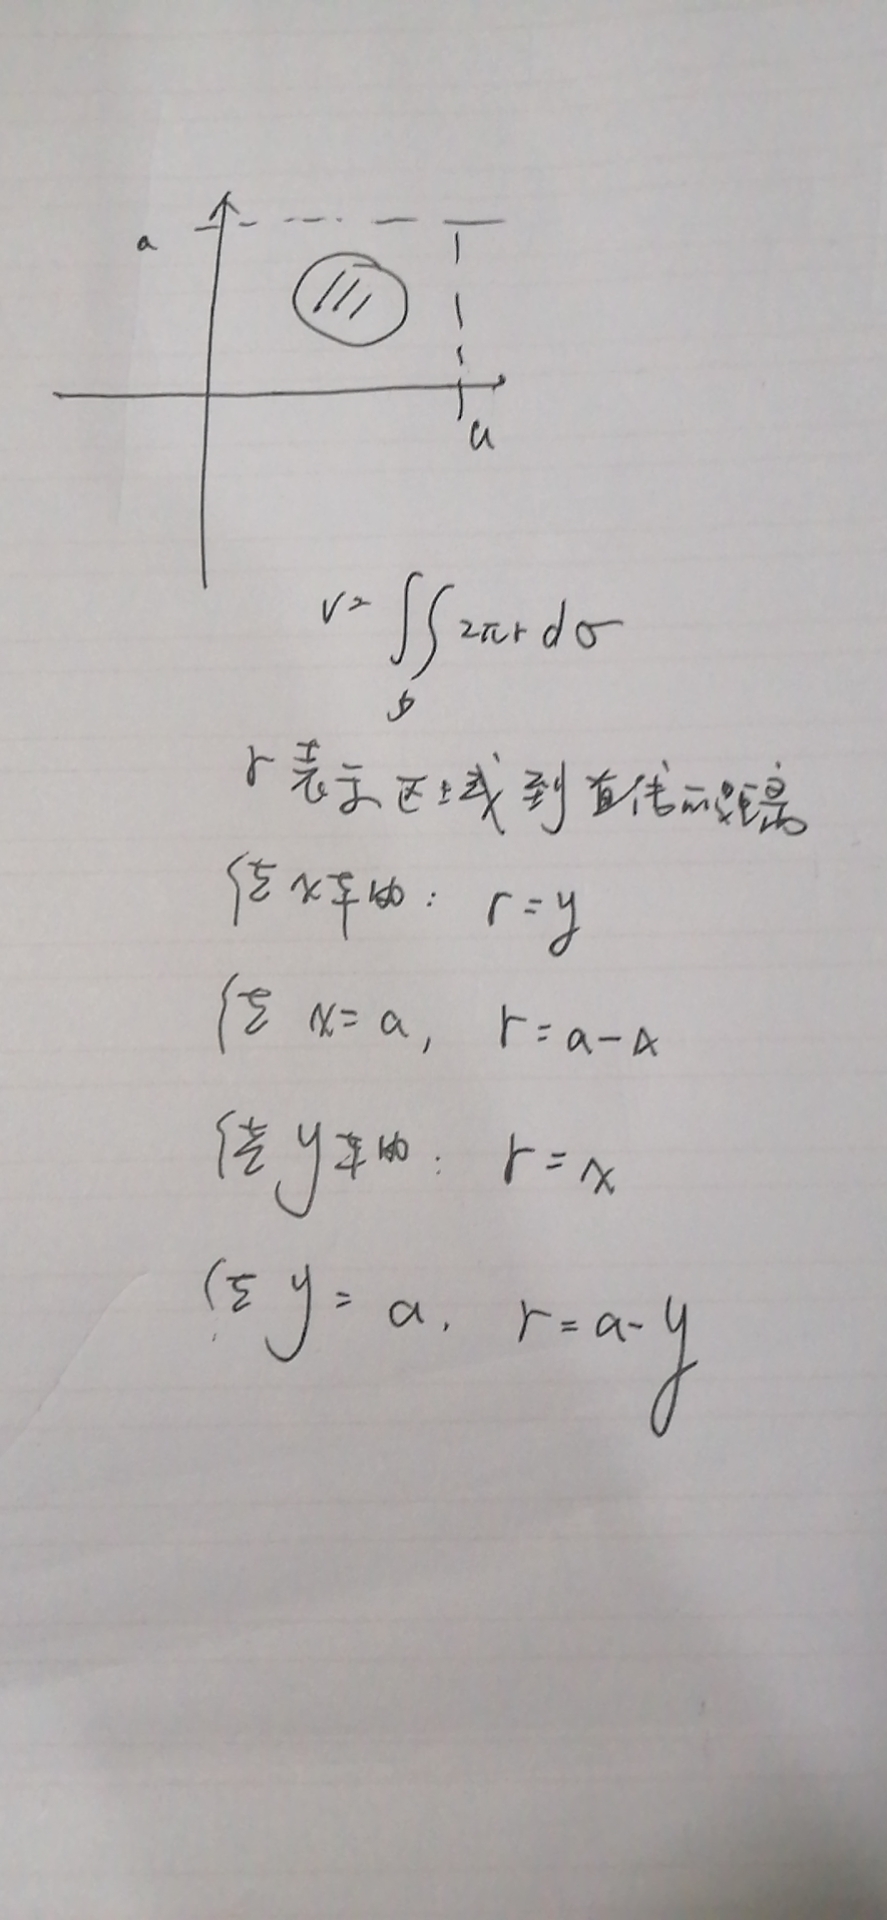 a
a
V = ∬ 2πr dσ
D
r 表示区域到直线的距离
绕x轴的: r = y
绕 x = a, r = a - x
绕y轴的: r = x
绕 y = a, r = a - y